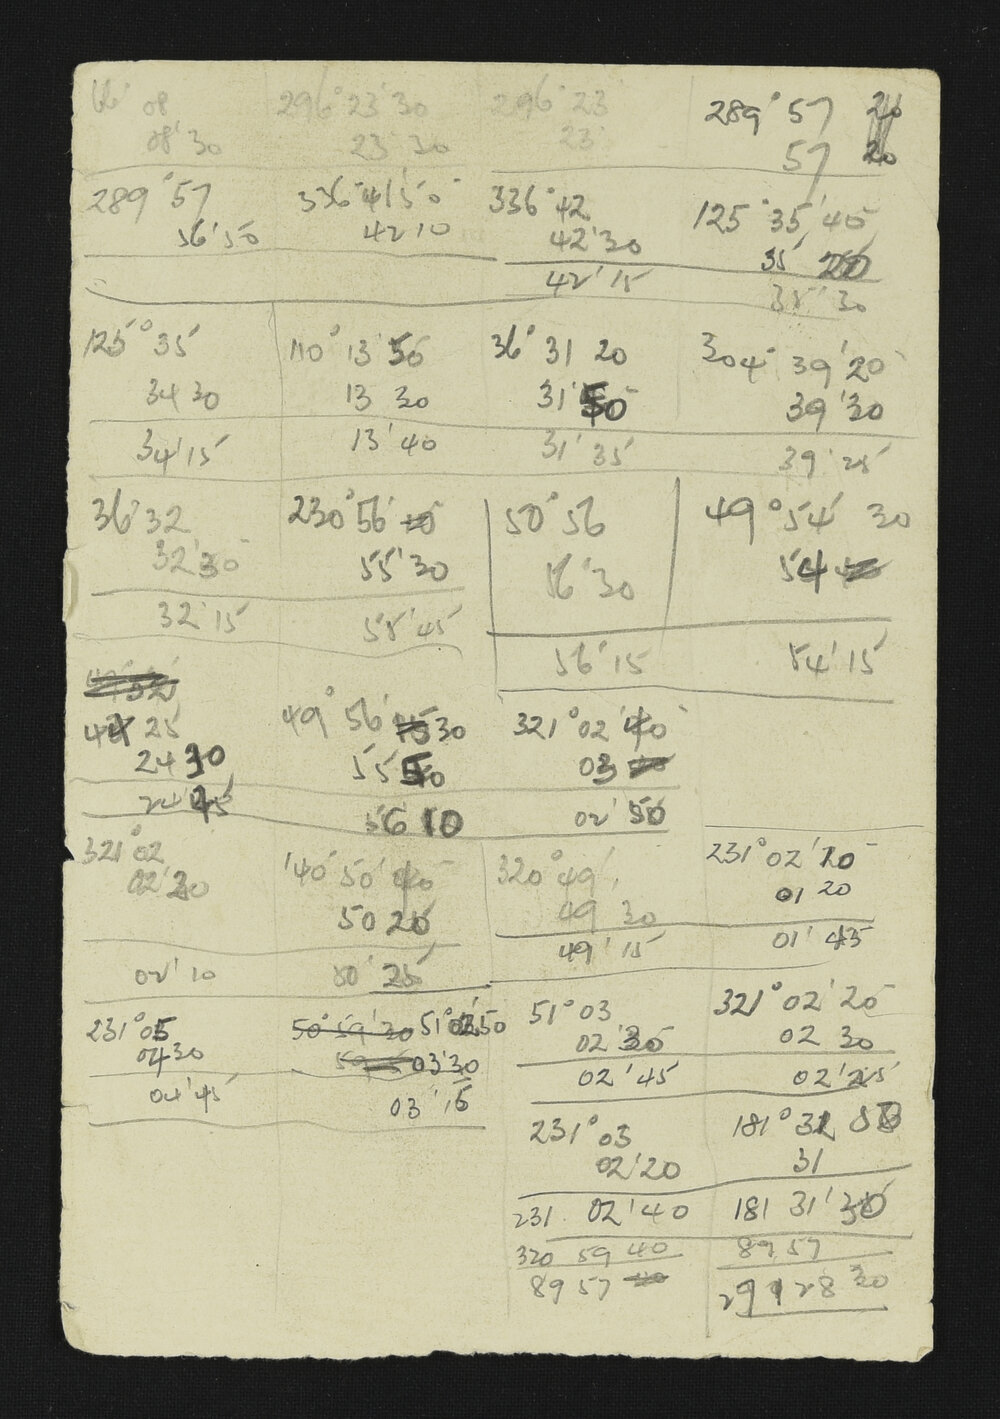 66° 08 296° 23' 30 296° 23 289° 57 20
08' 30 23 30 23 57 20
289° 57 336° 41' 50 336° 42 125° 35' 40
56' 50 42 10 42' 30 35
42' 15 35' 30
125° 35 110° 13 50 36° 31 20 304° 39' 20
34 30 13 30 31' 50 39' 30
34' 15 13' 40 31' 35 39' 25
36° 32 230° 56' 50° 56 49° 54' 30
32' 30 55' 30 56' 30 54
32' 15 55' 45 56' 15 54' 15
44 25 49° 56' 30 321° 02' 40
24 30 55 50 03
24' 45 56 10 02' 50
321° 02 140° 50' 40 320° 49' 231° 02' 20
02' 20 50 20 49 30 01 20
02' 10 50' 25 49' 15 01' 45
231° 05 50° 59' 20 51° 03' 50 51° 03 321° 02' 20
04 30 03' 30 02' 30 02 30
04' 45 03' 15 02' 45 02' 25
231° 03 181° 31
02' 20 31
231 02' 40 181 31' 30
320 59 40 89 57
89 57 91 28 30